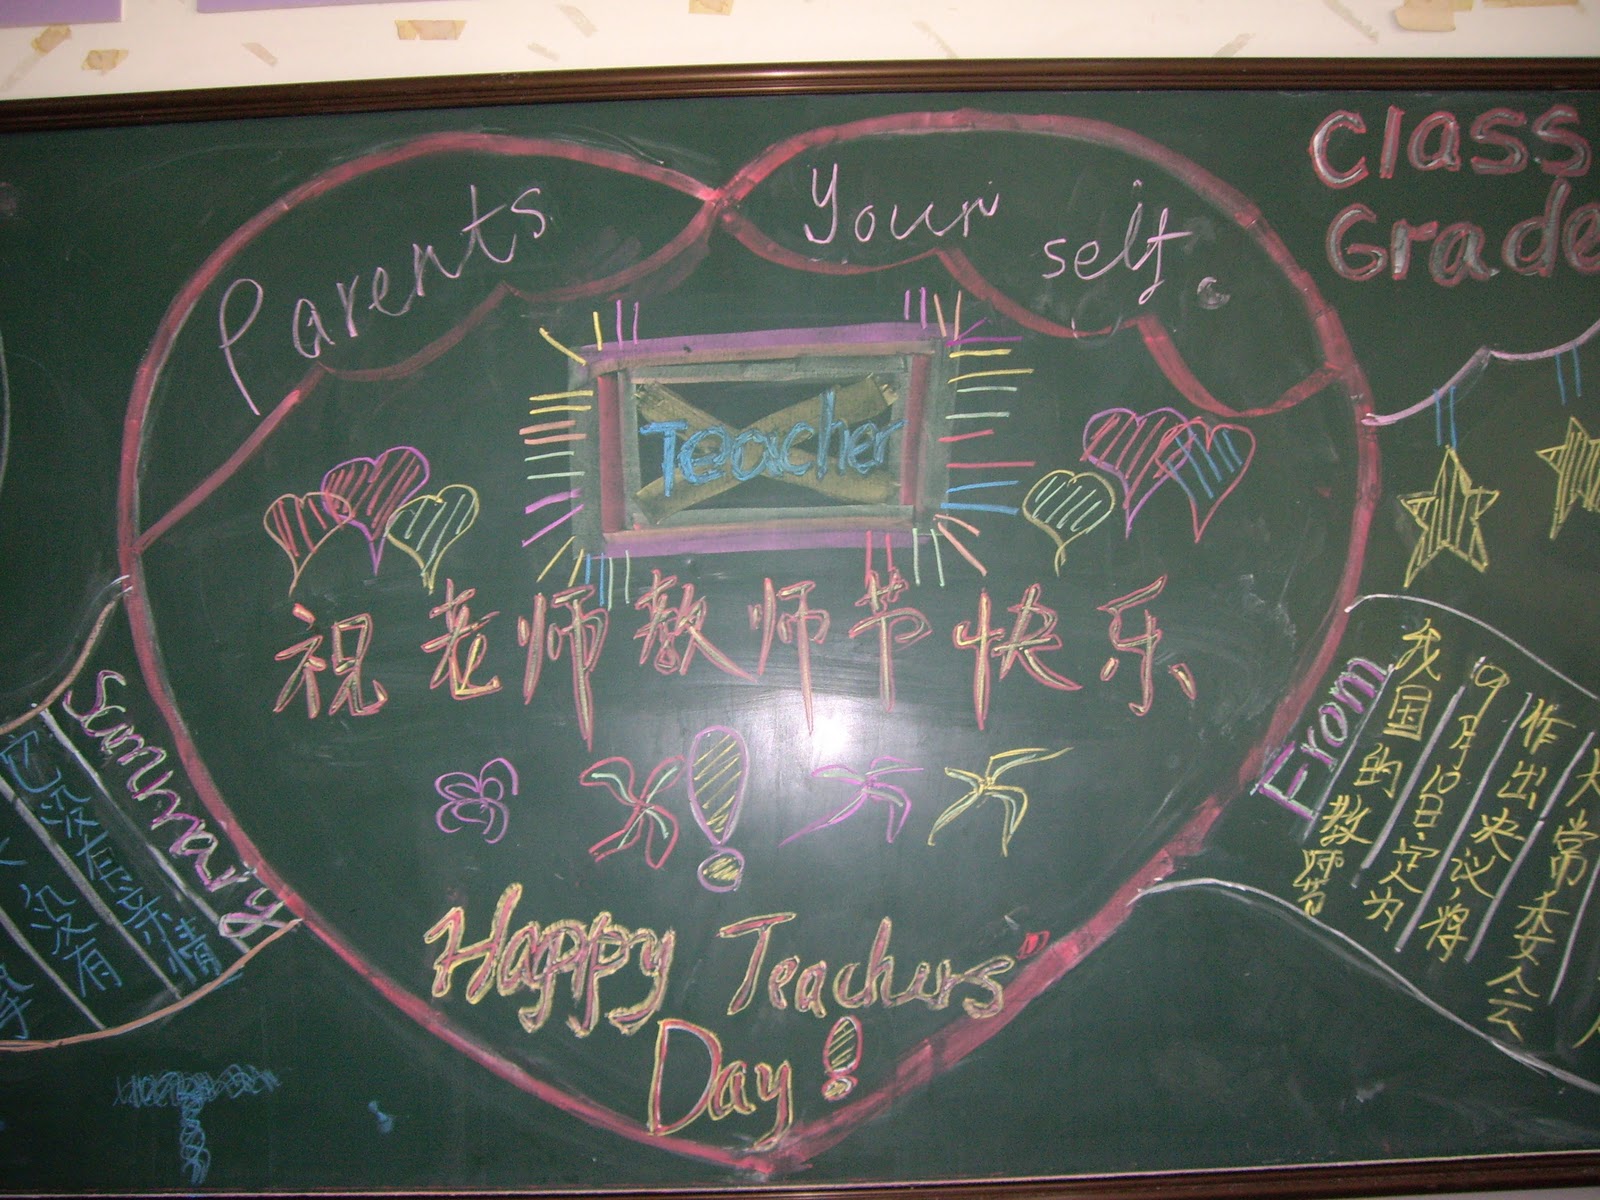 Parents Your self.
Class
Grade
Teacher
祝老师教师节快乐
Happy Teachers'
Day!
Summary
没有
From
大常委会
作出决议,将
9月10日定为
我国的
教师节